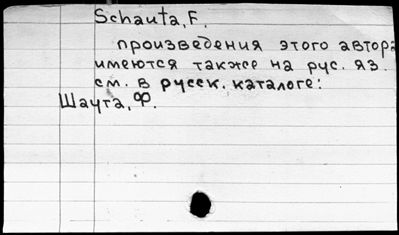 Schauta, F.
произведения этого автора
имеются также на рус. яз.
см. в русск. каталоге:
Шаута, Ф.